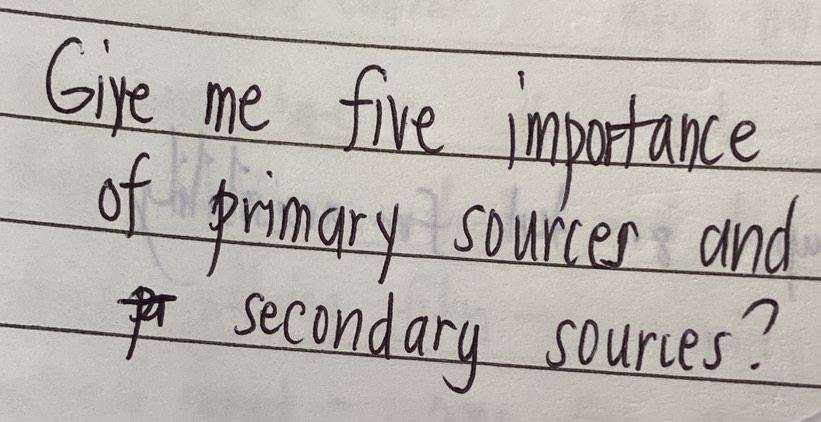 Give me five importance
of primary sources and
secondary sources?